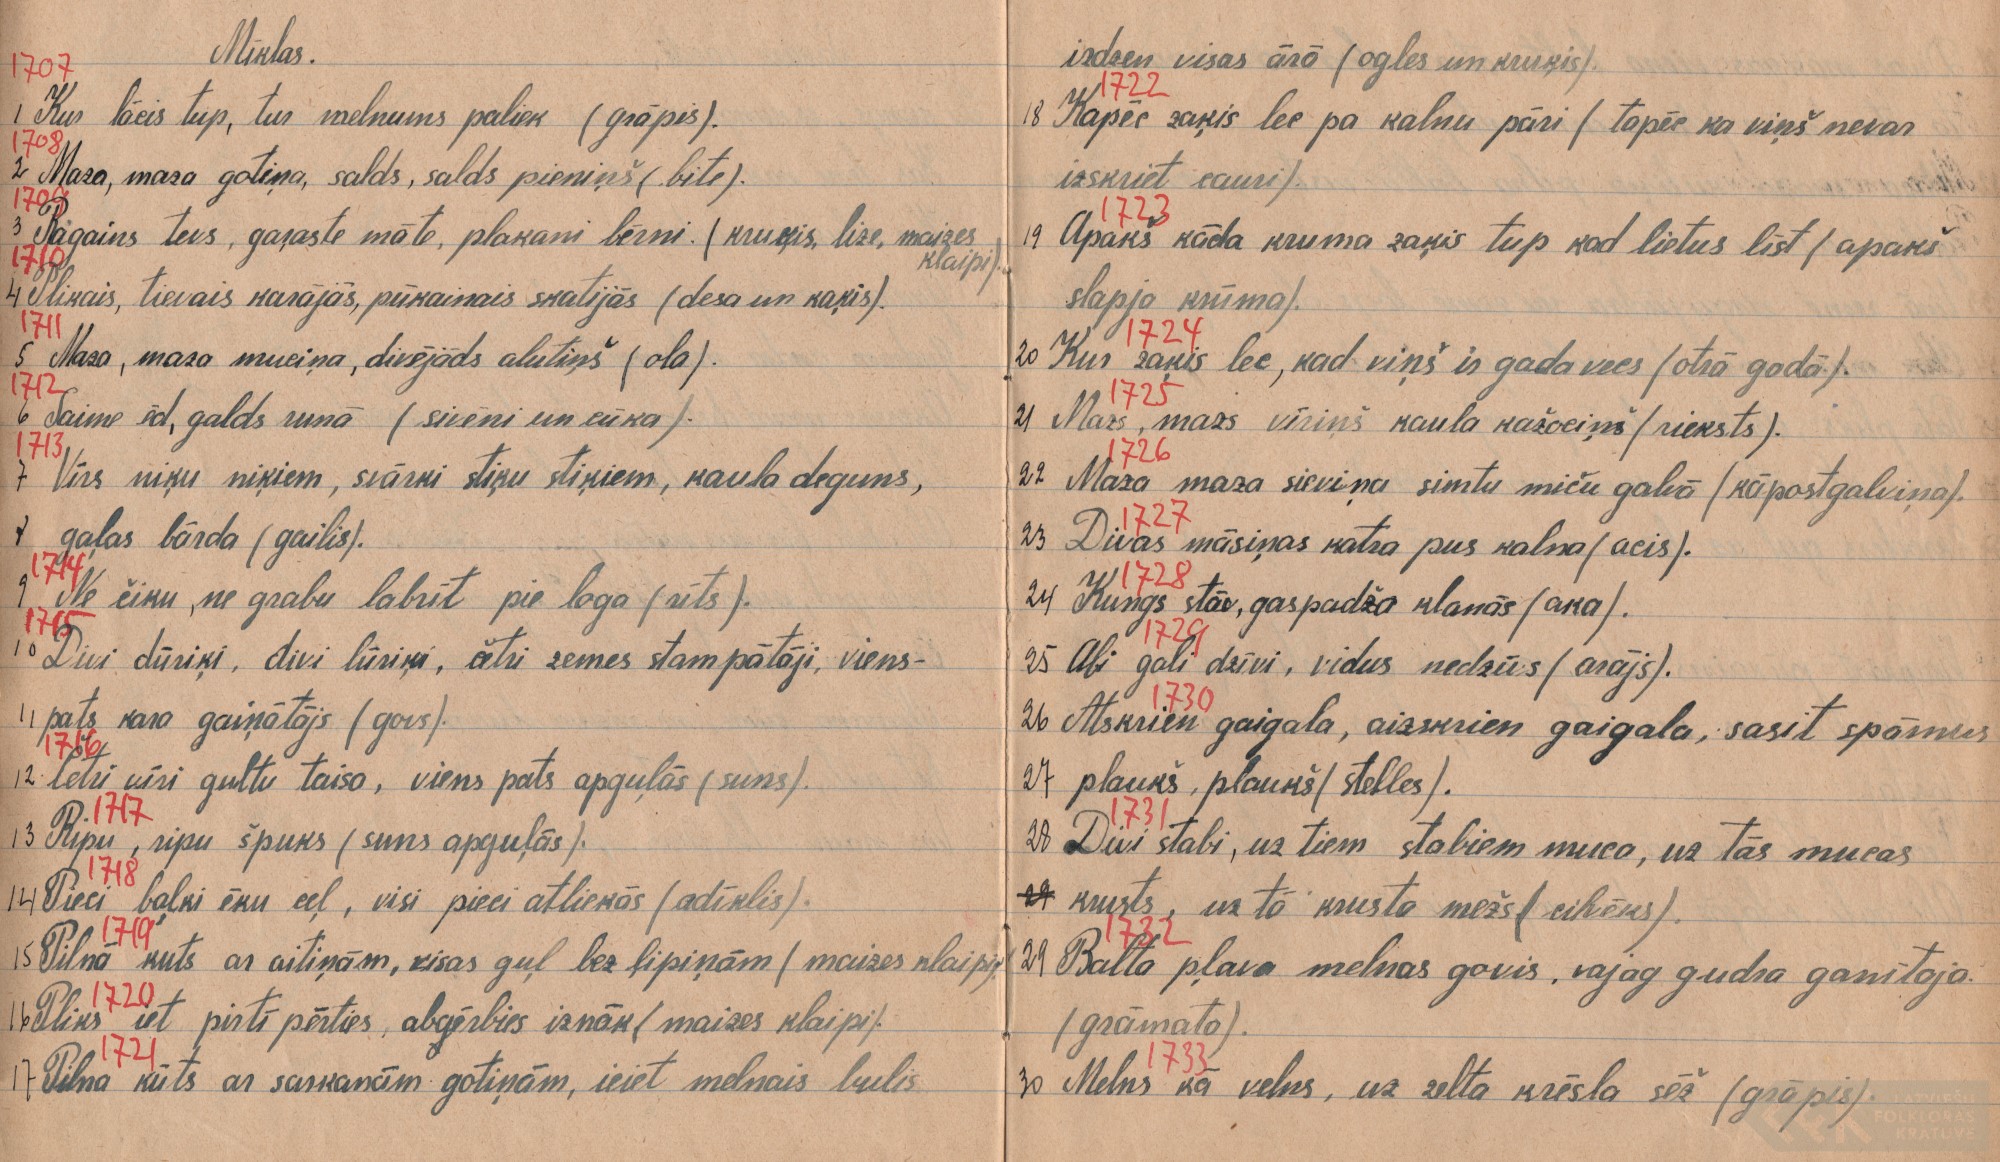 Mīklas.
1707
1 Kur lācis tup, tur melnums paliek (grāpis).
1708
2 Maza, maza gotiņa, salds, salds pieniņš (bite).
1709
3 Ragains tevs, gaŗaste māte, plakani bērni. (kruķis, lize, maizes
klaipi).
1710
4 Plikais, tievais karājās, pūkainais skatijās (desa un kaķis).
1711
5 Maza, maza muciņa, divējāds alutiņš (ola).
1712
6 Saime ēd, galds runā (sivēni un cūka).
1713
7 Vīrs niķu niķiem, svārki stiķu stiķiem, kaula deguns,
8 gaļas bārda (gailis).
1714
9 Ne čiku, ne grabu labrīt pie loga (rīts).
1715
10 Divi dūriķi, divi lūriķi, četri zemes stampātāji, viens-
11 pats kara gaiņātājs (govs).
1716
12 Četri vīri gultu taisa, viens pats apguļās (suns).
1717
13 Ripu, ripu špuks (suns apguļās).
1718
14 Pieci baļķi ēku ceļ, visi pieci atliekās (adīklis).
1719
15 Pilna kuts ar aitiņām, visas guļ bez ļipiņām (maizes klaipi)
1720
16 Pliks iet pirtī pērties, abģērbies iznāk (maizes klaipi).
1721
17 Pilna kūts ar sarkanām gotiņām, ieiet melnais bulis
izdzen visas ārā (ogles un kruķis).
1722
18 Kapēc zaķis lec pa kalnu pāri (tapēc ka viņš nevar
izskriet cauri).
1723
19 Apakš kāda kruma zaķis tup kad lietus līst (apakš
slapja krūma).
1724
20 Kur zaķis lec, kad viņš ir gada vecs (otrā gadā).
1725
21 Mazs, mazs vīriņš kaula kažociņš (rieksts).
1726
22 Maza maza sieviņa simtu miču galvā (kāpostgalviņa).
1727
23 Divas māsiņas katra pus kalna (acis).
1728
24 Kungs stāv, gaspadža klanās (aka).
1729
25 Abi gali dzīvi, vidus nedzīvs (arājs).
1730
26 Atskrien gaigala, aizskrien gaigala, sasit spārnus
27 plaukš, plaukš (stelles).
1731
28 Divi stabi, uz tiem stabiem muca, uz tās mucas
29 krusts, uz tā krusta mežs (cilvēks).
1732
29 Balta pļava melnas govis, vajag gudra ganītaja.
(grāmata).
1733
30 Melns kā velns, uz zelta krēsla sēž (grāpis).
LATVIEŠU
FOLKLORAS
KRĀTUVE